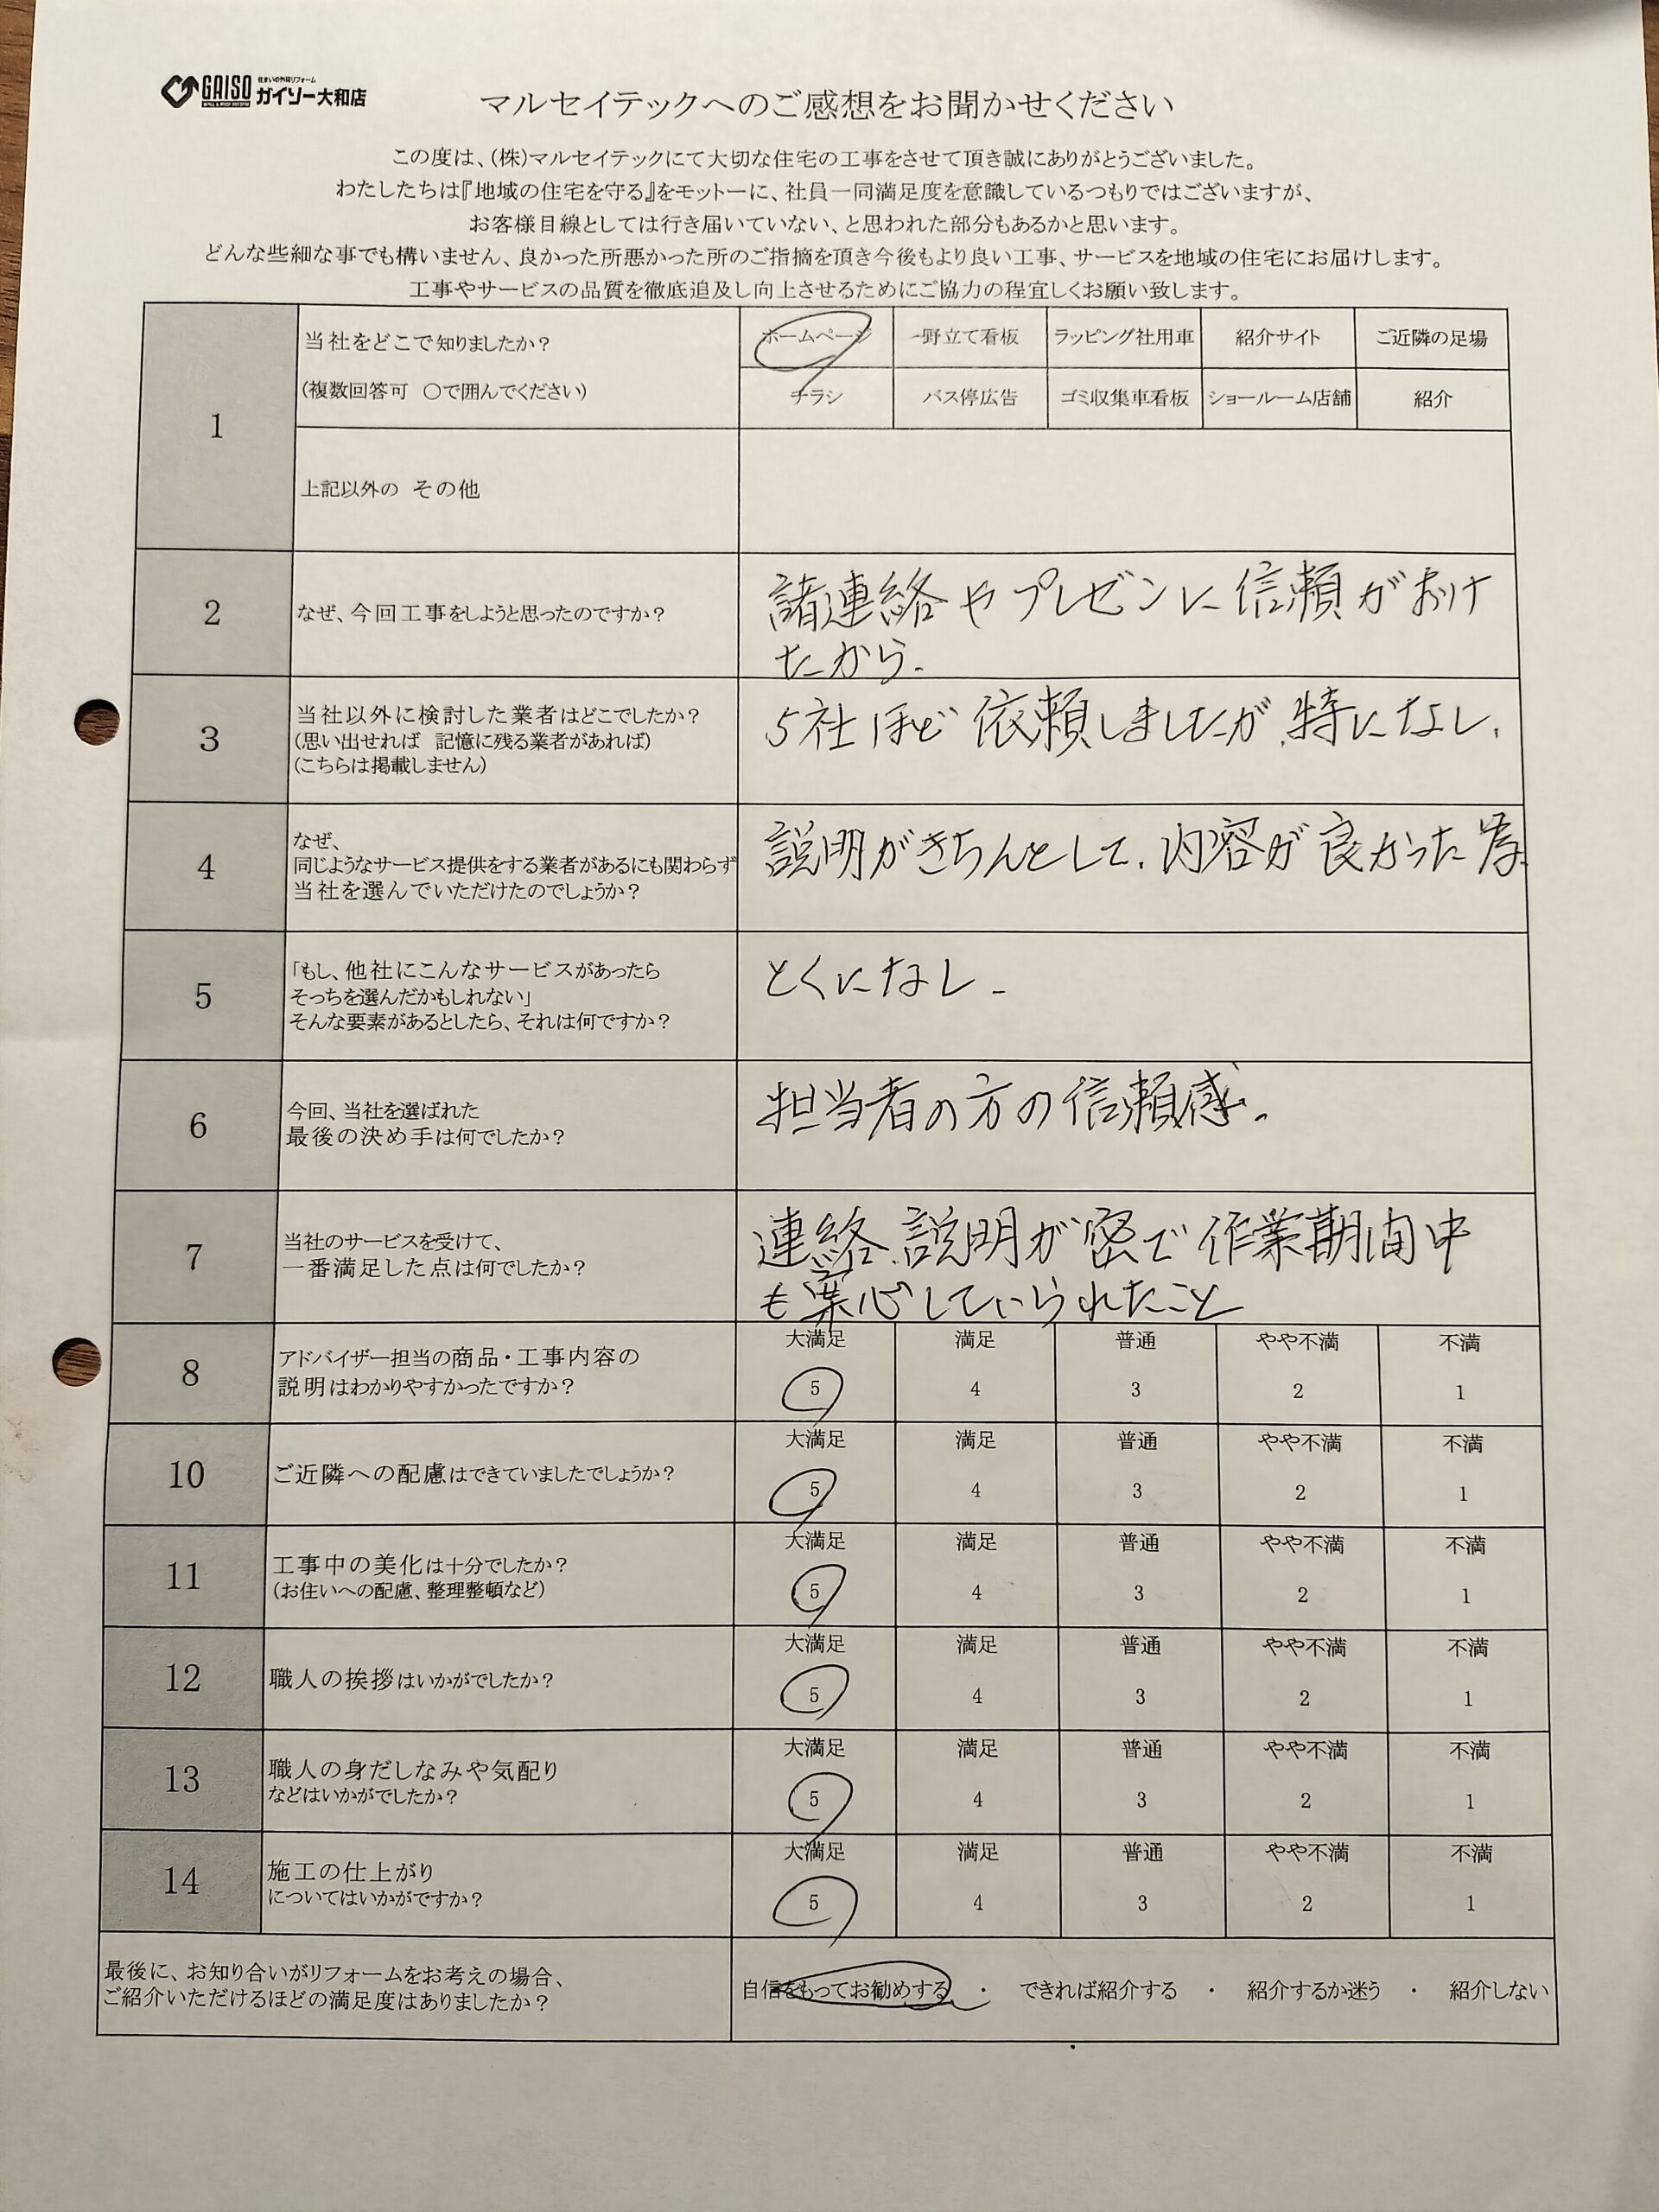 GAISO
住まいの外装リフォーム
ガイソー大和店
マルセイテックへのご感想をお聞かせください
この度は、(株)マルセイテックにて大切な住宅の工事をさせて頂き誠にありがとうございました。
わたしたちは『地域の住宅を守る』をモットーに、社員一同満足度を意識しているつもりではございますが、
お客様目線としては行き届いていない、と思われた部分もあるかと思います。
どんな些細な事でも構いません、良かった所悪かった所のご指摘を頂き今後もより良い工事、サービスを地域の住宅にお届けします。
工事やサービスの品質を徹底追及し向上させるためにご協力の程宜しくお願い致します。
1
当社をどこで知りましたか?
(複数回答可 ○で囲んでください)
ホームページ 野立て看板 ラッピング社用車 紹介サイト ご近隣の足場
チラシ バス停広告 ゴミ収集車看板 ショールーム店舗 紹介
上記以外の その他
2
なぜ、今回工事をしようと思ったのですか?
諸連絡やプレゼンに信頼がおけ
たから.
3
当社以外に検討した業者はどこでしたか?
(思い出せれば 記憶に残る業者があれば)
(こちらは掲載しません)
5社ほど依頼しましたが、特になし.
4
なぜ、
同じようなサービス提供をする業者があるにも関わらず
当社を選んでいただけたのでしょうか?
説明がきちんとして、内容が良かった為.
5
「もし、他社にこんなサービスがあったら
そっちを選んだかもしれない」
そんな要素があるとしたら、それは何ですか?
とくになし.
6
今回、当社を選ばれた
最後の決め手は何でしたか?
担当者の方の信頼感.
7
当社のサービスを受けて、
一番満足した点は何でしたか?
連絡、説明が密で作業期間中
も安心していられたこと
8
アドバイザー担当の商品・工事内容の
説明はわかりやすかったですか?
大満足 満足 普通 やや不満 不満
5 4 3 2 1
10
ご近隣への配慮はできていましたでしょうか?
大満足 満足 普通 やや不満 不満
5 4 3 2 1
11
工事中の美化は十分でしたか?
(お住いへの配慮、整理整頓など)
大満足 満足 普通 やや不満 不満
5 4 3 2 1
12
職人の挨拶はいかがでしたか?
大満足 満足 普通 やや不満 不満
5 4 3 2 1
13
職人の身だしなみや気配り
などはいかがでしたか?
大満足 満足 普通 やや不満 不満
5 4 3 2 1
14
施工の仕上がり
についてはいかがですか?
大満足 満足 普通 やや不満 不満
5 4 3 2 1
最後に、お知り合いがリフォームをお考えの場合、
ご紹介いただけるほどの満足度はありましたか?
自信をもってお勧めする ・ できれば紹介する ・ 紹介するか迷う ・ 紹介しない